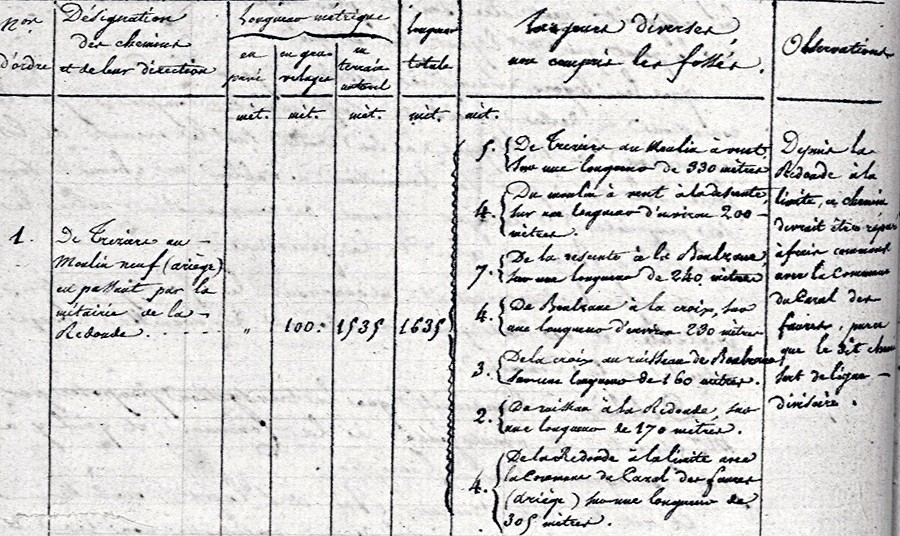 Nos d'ordre
Désignation
des chemins
et de leur direction
Longueur métrique
en pavé
en gravelages
en terrain naturel
Longueur totale
Largeurs diverses
non compris les fossés.
Observations
mèt. mèt. mèt. mèt. mèt.
1.
De Treziers au
Moulin neuf (ariège)
en passant par la
métairie de la
Redonde.
" 100. 1535 1635
5. De Treziers au Moulin à vent,
sur une longueur de 330 mètres
4. Du moulin à vent à la descente,
sur une longueur d'environ 200
mètres.
7. De la descente à la
sur une longueur de 240 mètres
4. De à la croix, sur
une longueur d'environ 230 mètres
3. De la croix au ruisseau de
sur une longueur de 160 mètres.
2. Du ruisseau à la Redonde, sur
une longueur de 170 mètres.
4. De la Redonde à la limite avec
la Commune de Caral des faures
(ariège) sur une longueur de
305 mètres.
Depuis la
Redonde à la
limite, ce chemin
devrait être réparé
à frais communs
avec la Commune
du Caral des
faures, parce
que le dit chemin
sert de ligne
divisoire.